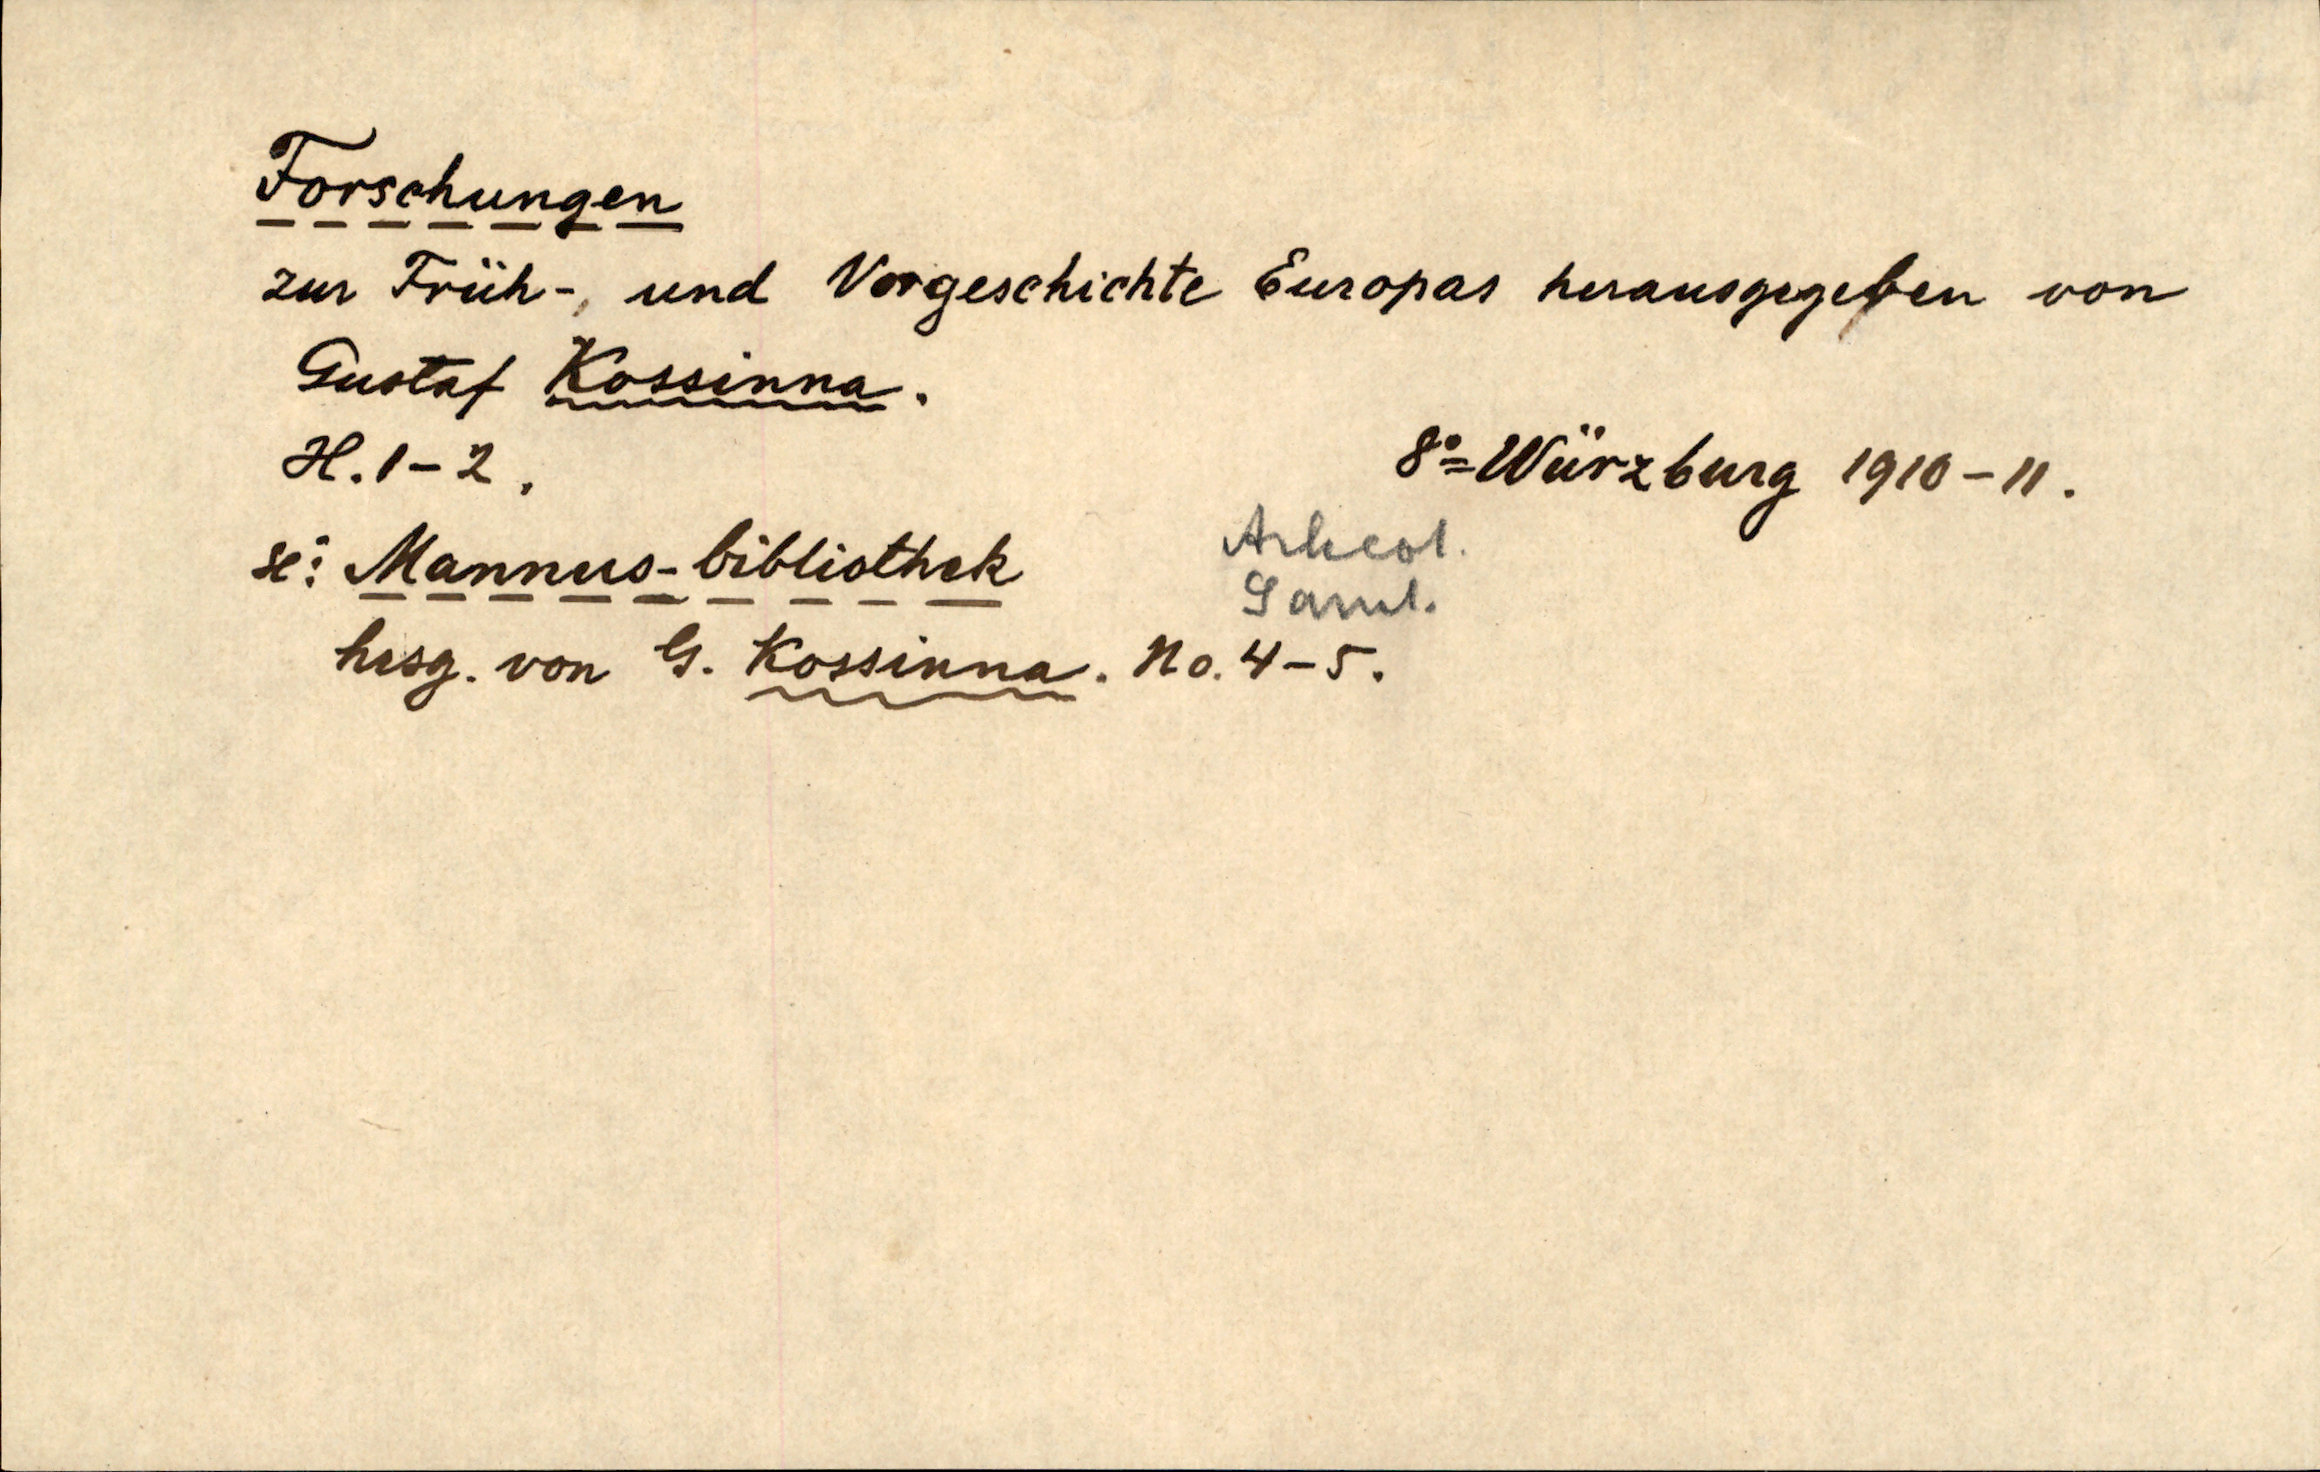 Forschungen
zur Früh-, und Vorgeschichte Europas herausgegeben von
Gustaf Kossinna.
H. 1-2.
8:o Würzburg 1910-11.
se: Mannus-bibliothek
Arkeol.
Saml.
hrsg. von G. Kossinna. No. 4-5.